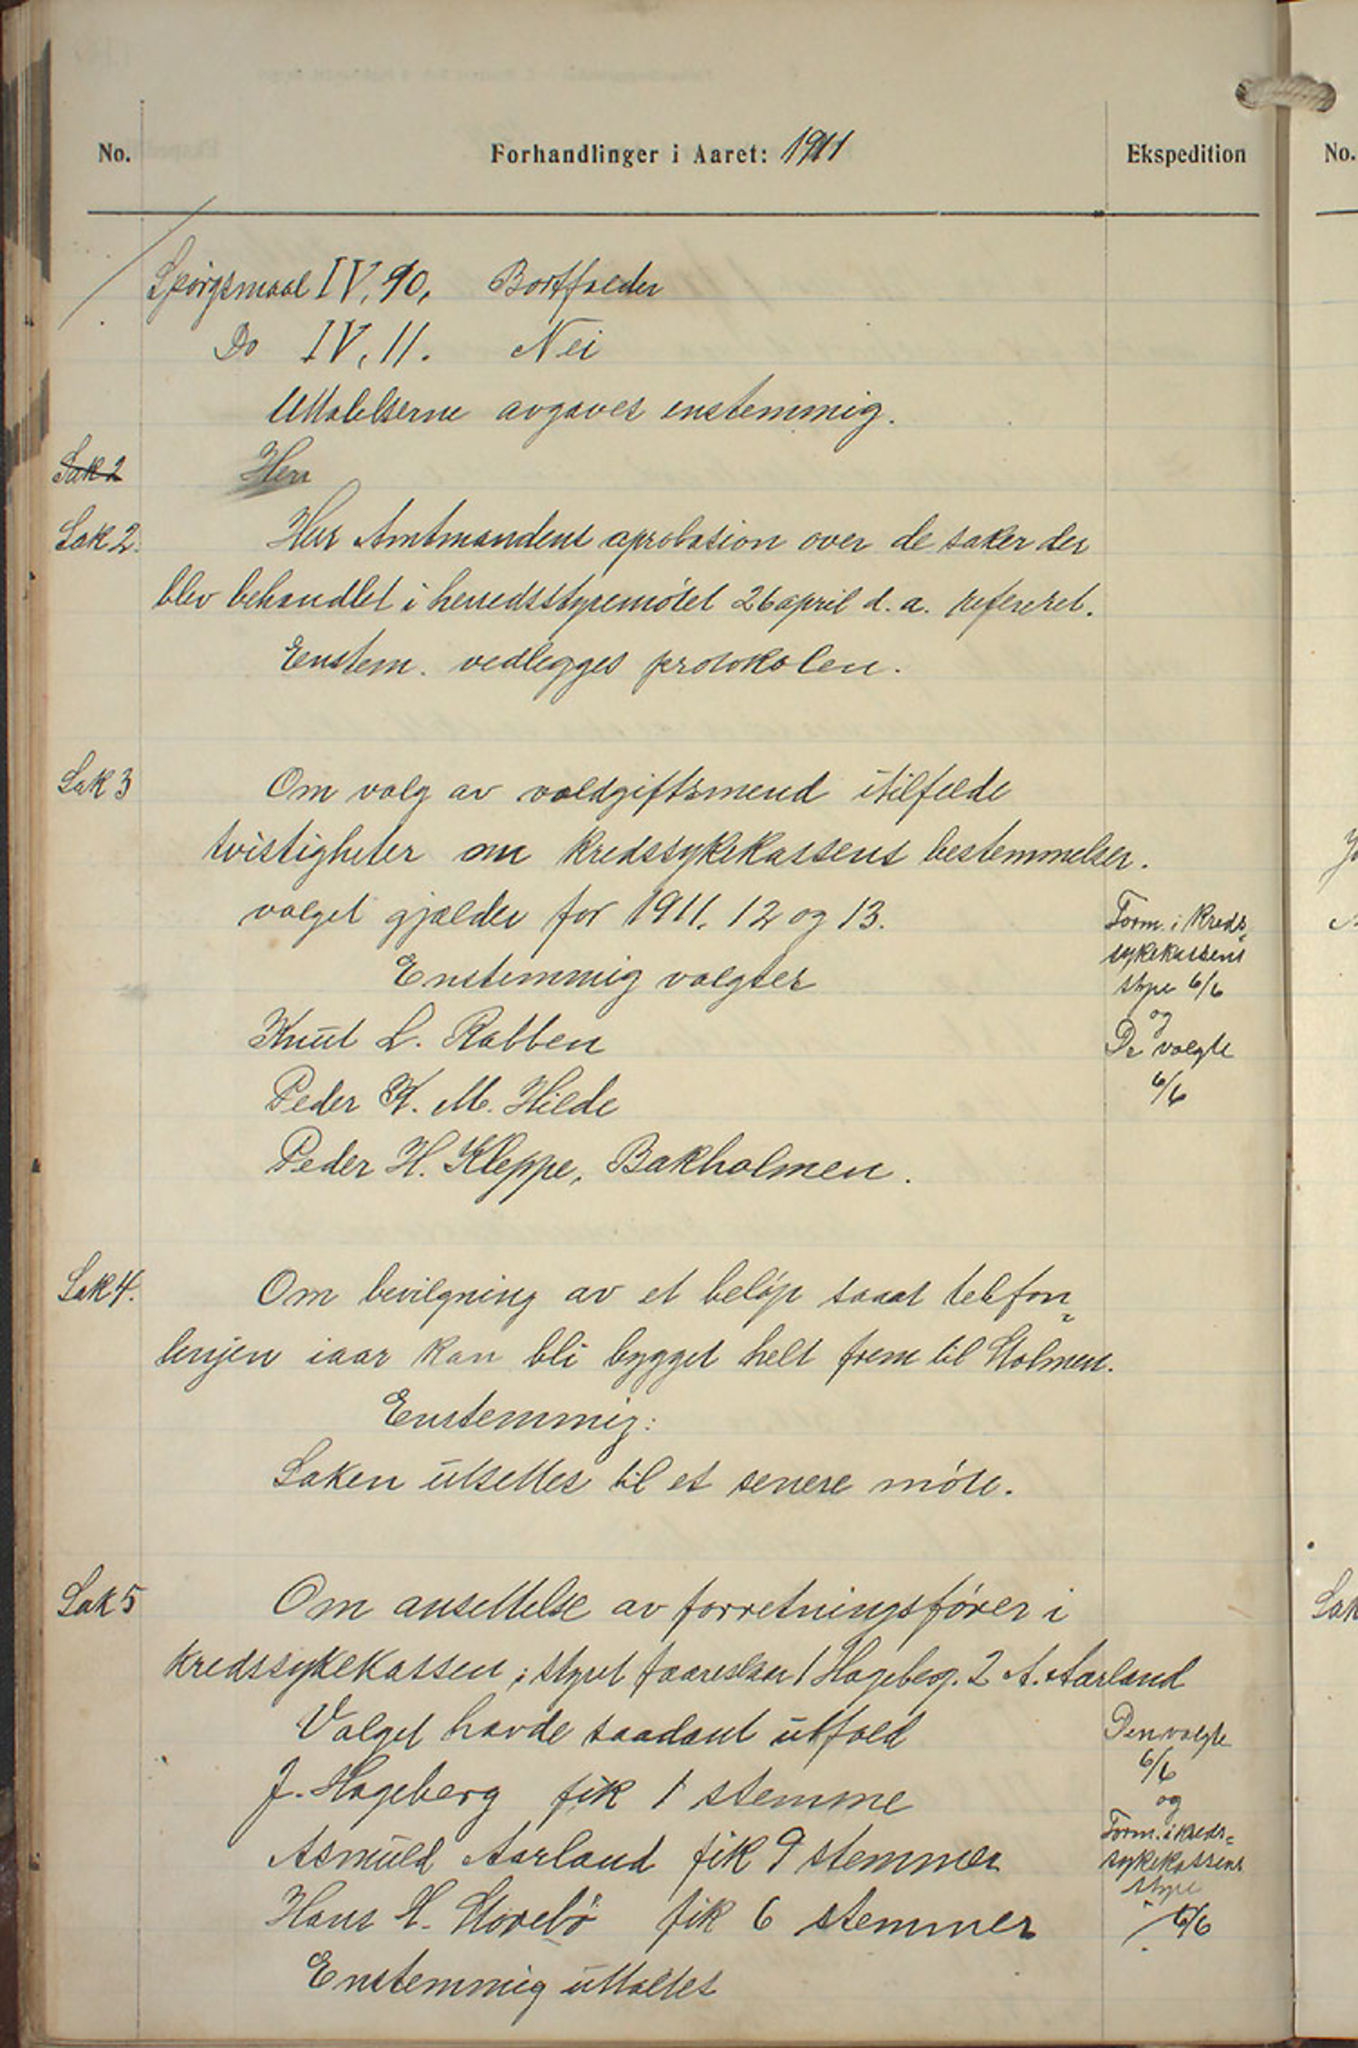 No. Forhandlinger i Aaret: 1911 Ekspedition No.
Spørgsmaal IV, 90, Bortfalder
Do IV, 11. Nei
Uttalelserne avgaves enstemmig.
Sak 2 Herr
Sak 2. Herr Amtmandens aprobation over de saker der
blev behandlet i herredsstyremøtet 26 april d. a. refereret.
Enstem. vedlegges protokolen.
Sak 3 Om valg av voldgiftsmend itilfelde
tvistigheter om kredssykekassens bestemmelser.
valget gjælder for 1911. 12 og 13.
Enstemmig valgtes
Knut L. Rabben
Peder K. M. Hilde
Peder H. Kleppe, Bakholmen.
Form. i kreds-
sykekassens
styre 6/6
og
De valgte
6/6
Sak 4. Om bevilgning av et beløp saaat telefon-
lenjen iaar kan bli bygget helt frem til Stolmen.
Enstemmig:
Saken utsettes til et senere møte.
Sak 5 Om ansettelse av forretningsfører i
kredssykekassen; styret foareslaar 1 Hageberg. 2 A. Aarland
Valget havde saadant utfald
J. Hageberg fik 1 stemme
Asmuld Aarland fik 9 stemmer
Hans H. Storebø fik 6 stemmer
Enstemmig uttaltes
Den valgte
6/6
og
Form. i kreds-
sykekassens
styre
6/6
Sak